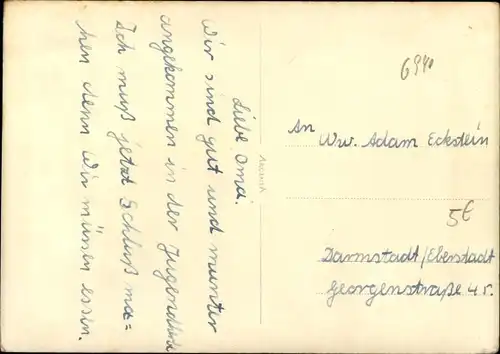 Liebe Oma.
Wir sind gut und munter
angekommen in der
Ich muß jetzt Schluß ma=
hen denn wir müssen essen.
6940
An
Ww. Adam Eckstein
5€
Darmstadt/Eberstadt
Georgenstraße 45.